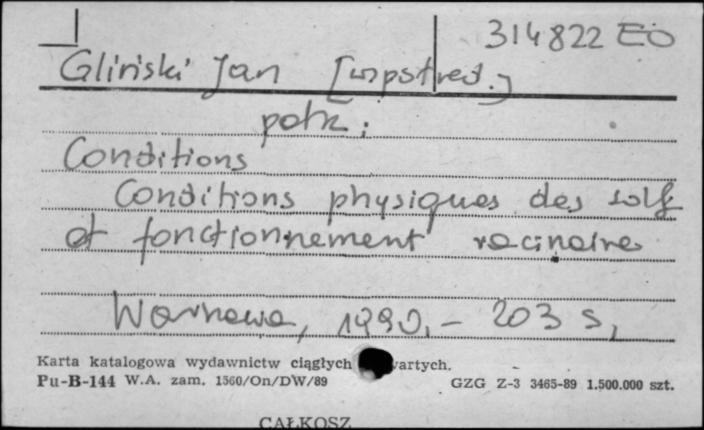 314822 EO
Gliński Jan [współred.]
patrz:
Conditions
Conditions physiques des sols
et fonctionnement racinaire
Warszawa, 1990. - 203 s,
Karta katalogowa wydawnictw ciągłych wartych.
Pu-B-144 W.A. zam. 1560/On/DW/89 GZG Z-3 3465-89 1.500.000 szt.
CAŁKOSZ